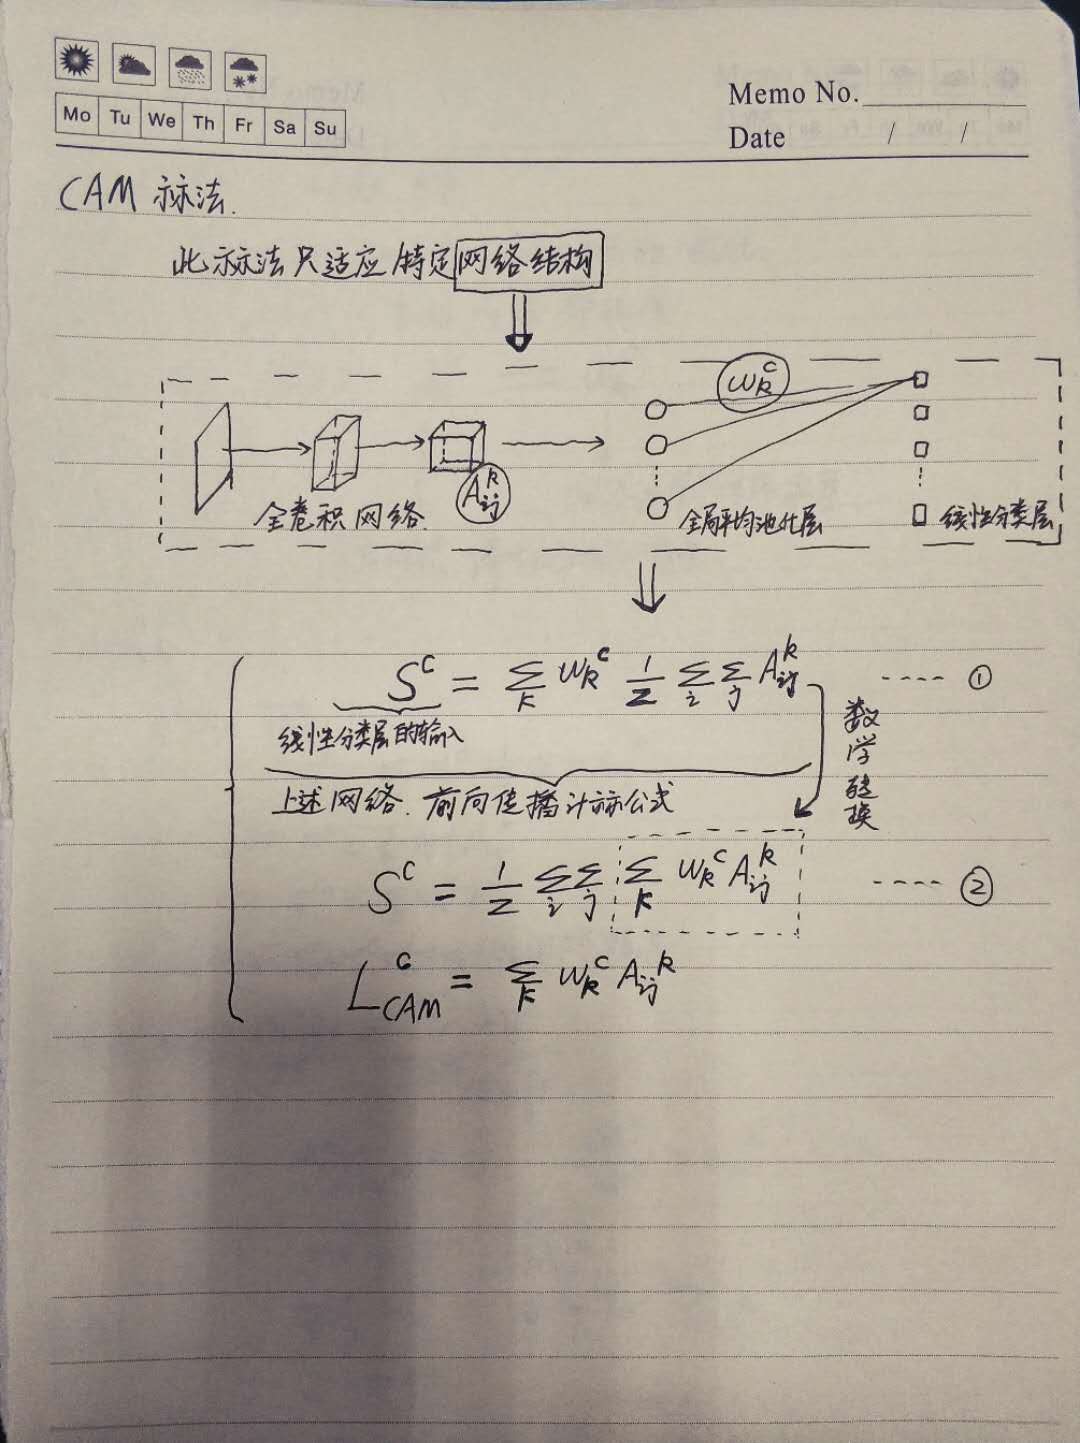 Mo Tu We Th Fr Sa Su
Memo No.
Date / /
CAM 算法.
此算法只适应特定网络结构
w_k^c
A_{ij}^k
全卷积网络.
全局平均池化层
线性分类层
S^c = Σ_k w_k^c 1/Z Σ_i Σ_j A_{ij}^k ---- ①
线性分类层的输入
数学转换
上述网络.前向传播计算公式
S^c = 1/Z Σ_i Σ_j Σ_k w_k^c A_{ij}^k ---- ②
L_{CAM}^c = Σ_k w_k^c A_{ij}^k